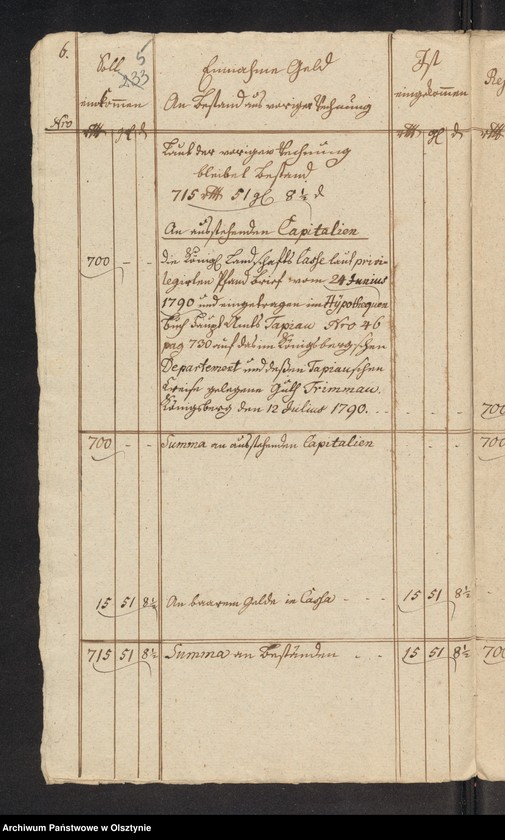 6.
Soll
5
233
einkommen
Einnahme Geld
An Bestand aus voriger Rechnung
Ist
eingekommen
Nro
rthl gl d
rthl gl d
Laut der vorigen Rechnung
bleibet Bestand
715 rthl 51 gl 8½ d
An ausstehenden Capitalien
700 - - die Königl Landschafts Casse laut privi-
legirten Pfand Brief vom 24 Junius
1790 und eingetragen im Hypothequen
Buch Haupt Amts Tapiau Nro 46
pag 730 auf das im Königsbergschen
Departement und deßen Tapiauschen
Creise gelegene Guth Trimmau.
Königsberg den 12 Julius 1790. - - - 700
700 - - Summa an ausstehenden Capitalien - - - 700
15 51 8½ An baarem Gelde in Cassa - - - 15 51 8½ -
715 51 8½ Summa an Beständen - - 15 51 8½ 700
Archiwum Państwowe w Olsztynie